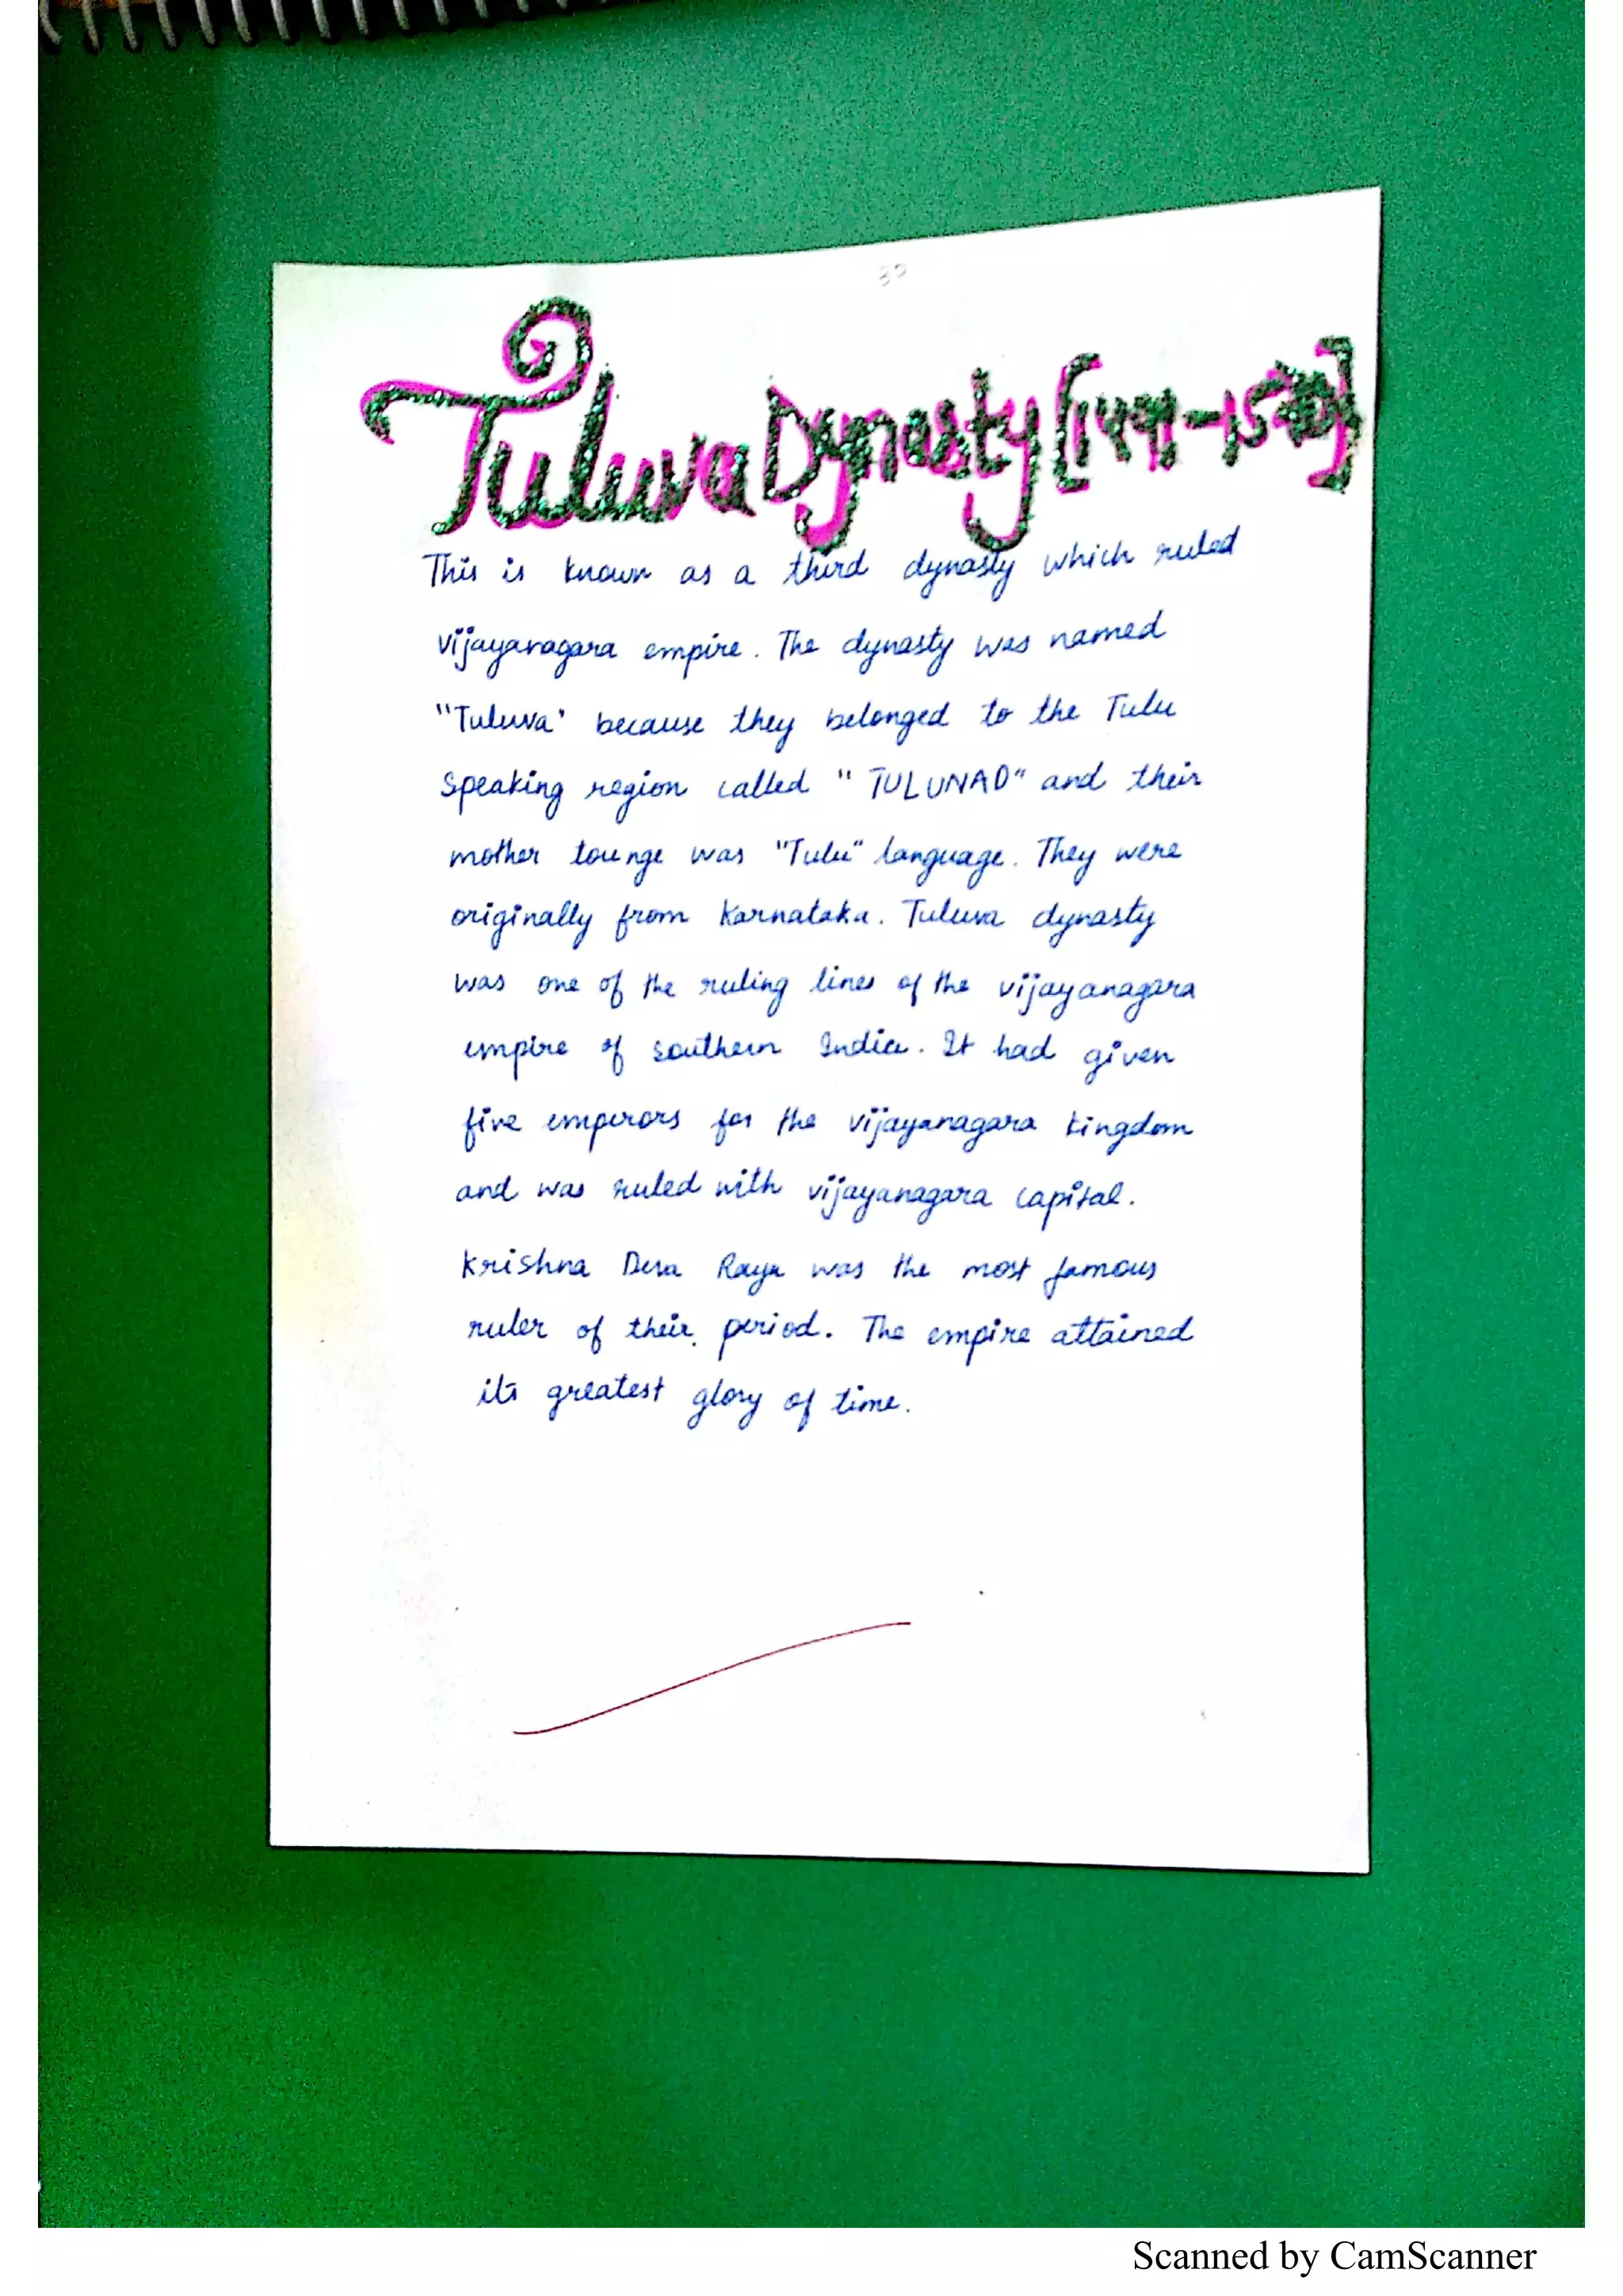 32
Tuluva Dynasty [1491-1570]
This is known as a third dynasty which ruled
vijayanagara empire. The dynasty was named
"Tuluva" because they belonged to the Tulu
speaking region called "TULUNAD" and their
mother tounge was "Tulu" language. They were
originally from Karnataka. Tuluva dynasty
was one of the ruling lines of the vijayanagara
empire of southern India. It had given
five emperors for the vijayanagara kingdom
and was ruled with vijayanagara capital.
Krishna Deva Raya was the most famous
ruler of their period. The empire attained
its greatest glory of time.
Scanned by CamScanner